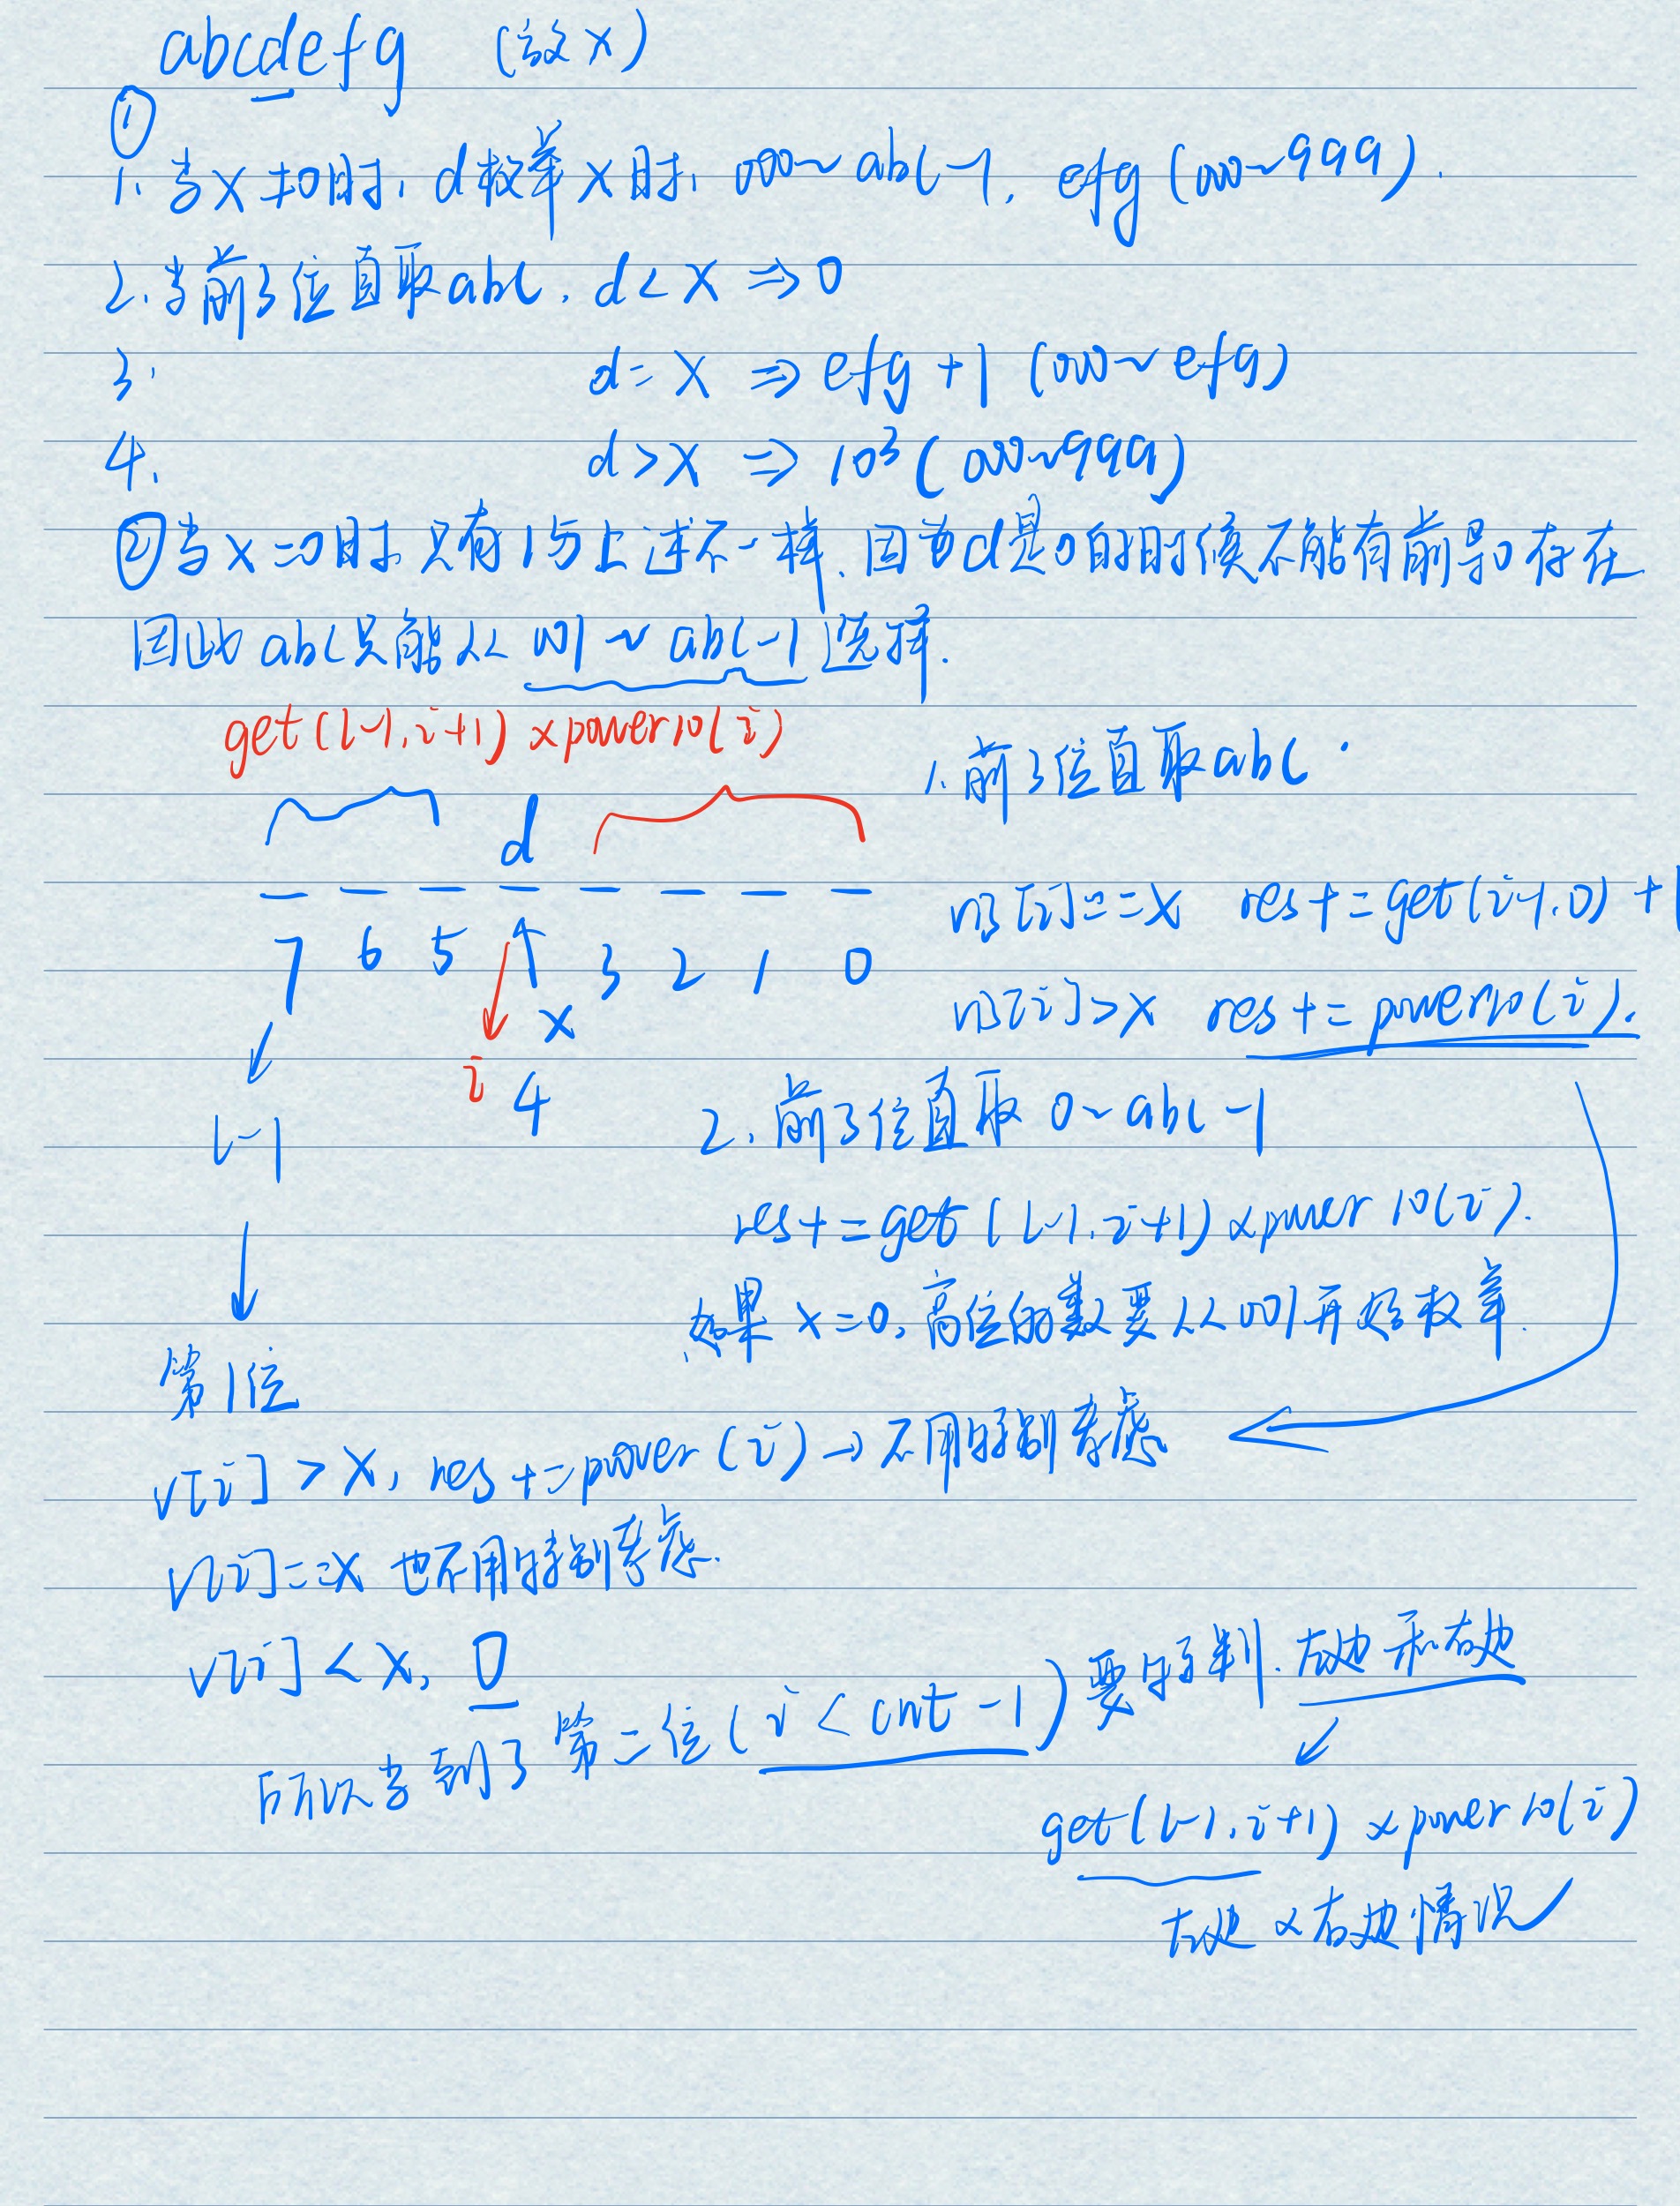 abcdefg (放x)
①
1. 当x≠0时, d枚举x时, 000~abc-1, efg (000~999).
2. 当前3位直取abc, d<x ⇒ 0
3. d=x ⇒ efg+1 (000~efg)
4. d>x ⇒ 10³ (000~999)
② 当x=0时 只有1与上述不一样. 因为d是0的时候不能有前导0存在
因此abc只能从 001~abc-1 选择.
get(l-1,i+1) ×power10(i)
1. 前3位直取abc.
d
n[i]==x res+=get(i-1,0)+1
7 6 5 3 2 1 0
x
n[i]>x res+=power10(i).
i 4
l-1
2. 前3位直取 0~abc-1
res+=get(l-1,i+1)×power10(i).
如果 x=0, 高位的数要从001开始枚举.
第1位
v[i]>x, res+=power(i) → 不用特别考虑
v[i]==x 也不用特别考虑.
v[i]<x, 0
所以当到了第二位(i<cnt-1)要特判. 左边和右边
get(l-1,i+1)×power10(i)
左边×右边情况